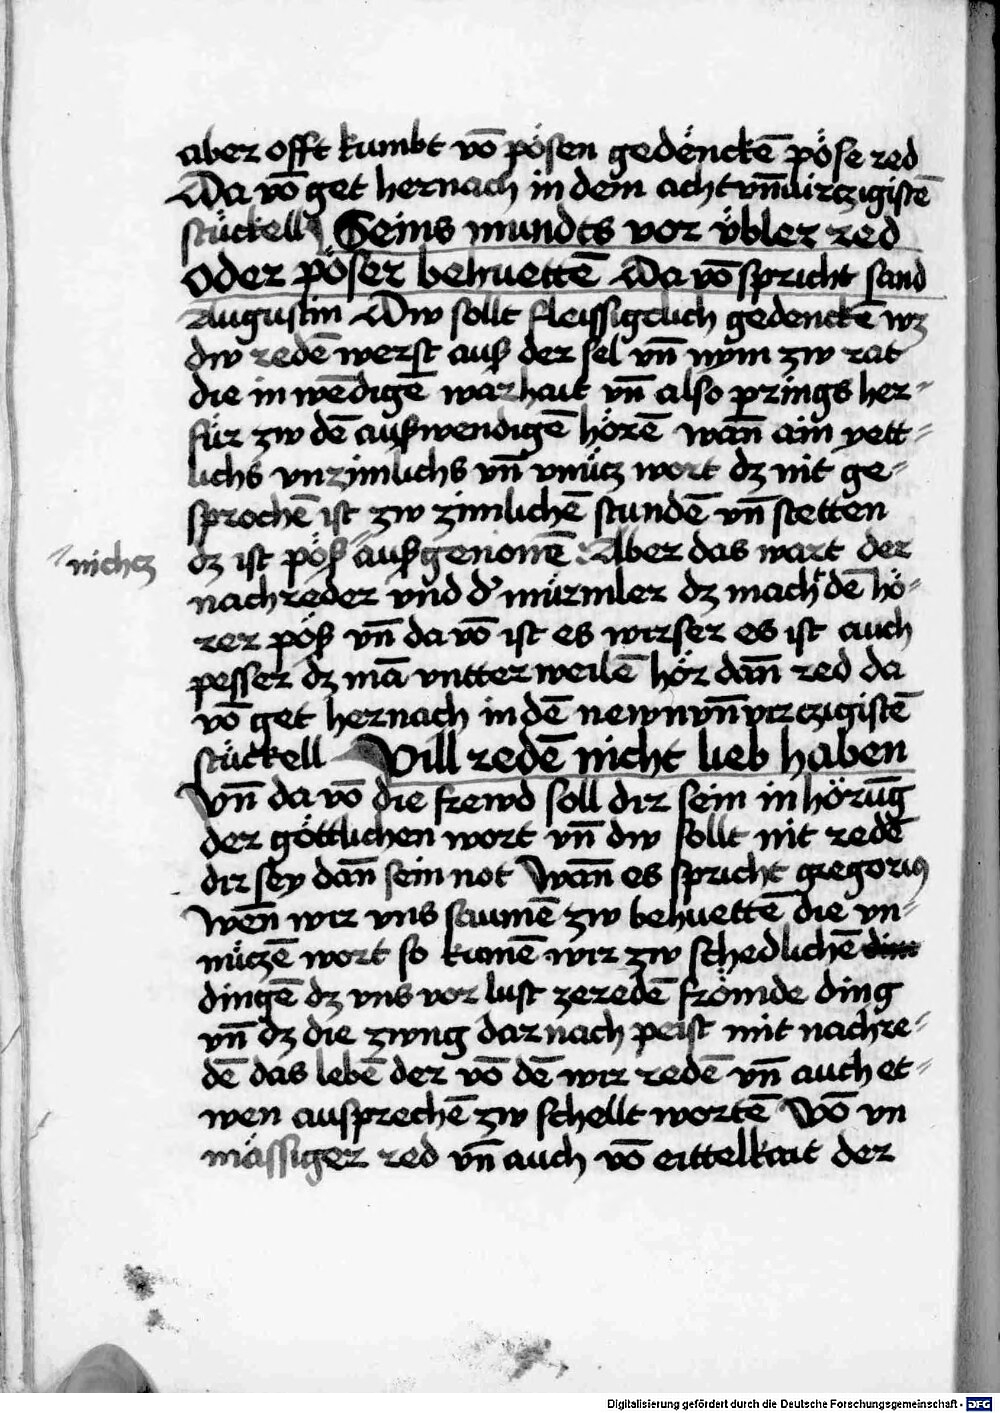 aber offt kumbt vō pösen gedenckē pöse red
Da vō get hernach in dem acht vn̄ virczigistē
stückell Seins mundts vor übler red
oder pöser behuettē Da vō spricht sand
Augustin Dw sollt fleissigclich gedenckē wz
dw redē werst auß der sel vn̄ nym zw rat
die in wēdigē warhait vn̄ also prings her⸗
für zw dē außwendigē hörē wan̄ ain yett⸗
lichs vnzimlichs vn̄ vnücz wort dz nit ge⸗
sprochē ist zw zimlichē stundē vn̄ stetten
dz ist pöß außgenomē Aber das wart der
nichcz
nachreder vnd d' mürmler dz macht dē hö⸗
rer pöß vn̄ da vō ist es wirser es ist auch
pesser dz mā vntterweilē hör dan̄ red da
vō get hernach in dē newn vn̄ virczigistē
stückell Vill redē nicht lieb haben
Vn̄ da vō die frewd soll dir sein in hörūg
der göttlichen wort vn̄ dw sollt nit redē
dir sey dan̄ sein not Wan̄ es spricht gregorius
Wen̄ wir vns saumē zw behuettē die vn⸗
nüczē wort so kumē wir zw schedlichē
dingē dz vns vor lust zeredē frömde ding
vn̄ dz die zwng darnach peist mit nachre⸗
dē das lebē der vō dē wir redē vn̄ auch et⸗
wen ausprechē zw schellt wortē Vō vn
mässiger red vn̄ auch vō eittelkait der
Digitalisierung gefördert durch die Deutsche Forschungsgemeinschaft - DFG